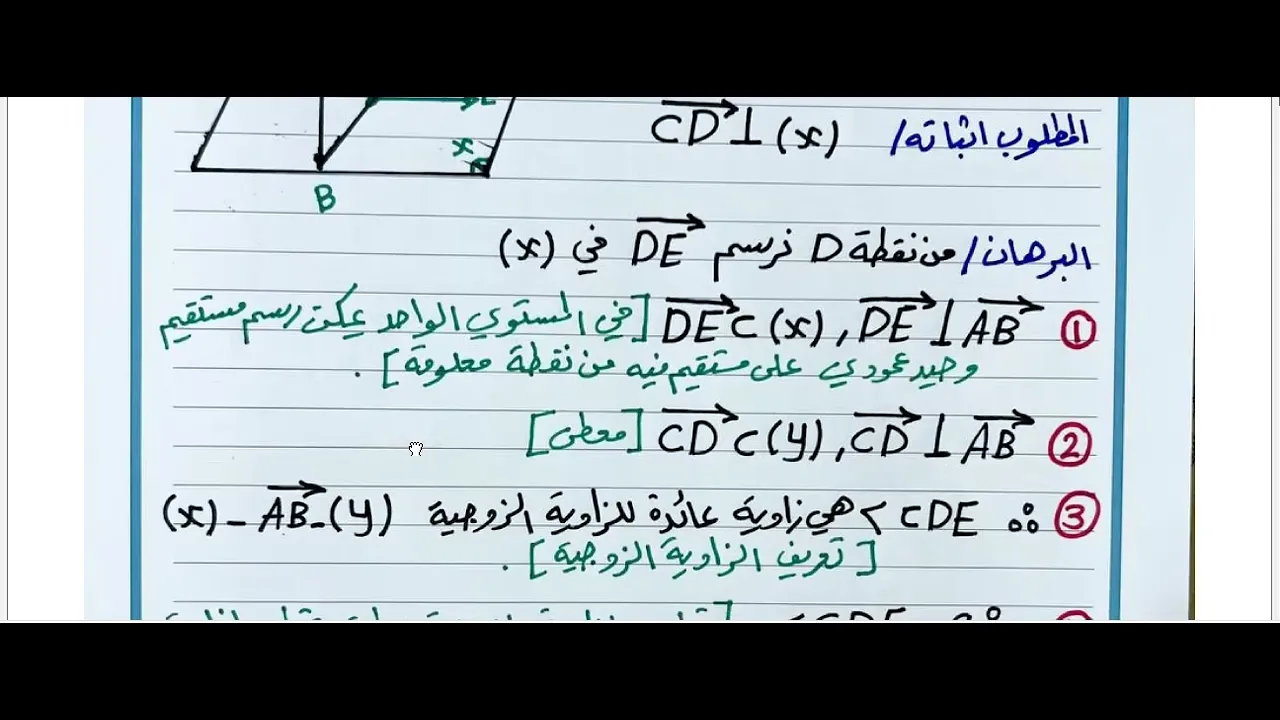 المطلوب اثباته/ CD ⊥ (x)
x
B
البرهان/ من نقطة D نرسم DE في (x)
① DE ⊂ (x) , DE ⊥ AB [في المستوي الواحد يمكن رسم مستقيم
وحيد عمودي على مستقيم فيه من نقطة معلومة] .
② CD ⊂ (y) , CD ⊥ AB [معطى]
③ ∴ CDE > هي زاوية عائدة للزاوية الزوجية (x) - AB - (y)
[تعريف الزاوية الزوجية] .